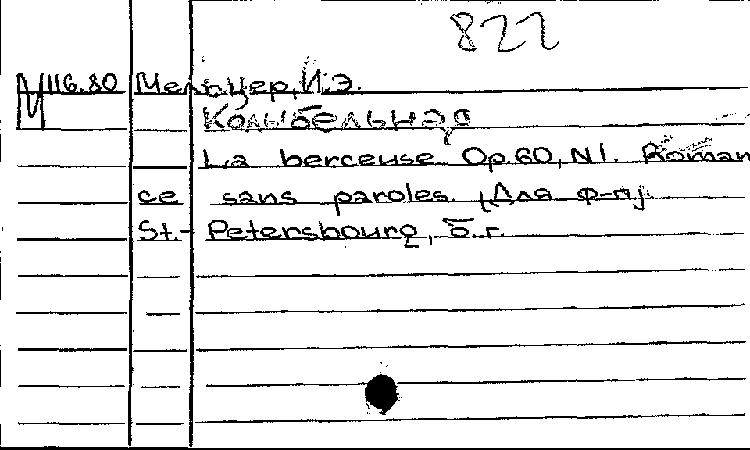 822
М 116.80 Мельцер, И.Э.
Колыбельная
La berceuse Op.60, N1. Roman
ce sans paroles. [Для ф-п].
St.- Petersbourg, б.г.